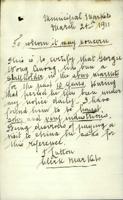 Municipal Markets
March 2nd 1911
To whom it may concern
This is to certify that George
Hong Quong has been a
stallholder in the above market
for the past 12 years. During
that period he has been under
my notice daily. I have
found him to be honest
sober and very industrious.
Being desirous of paying a
visit to China he asks for
this reference.
J Sutton
Clerk Markets